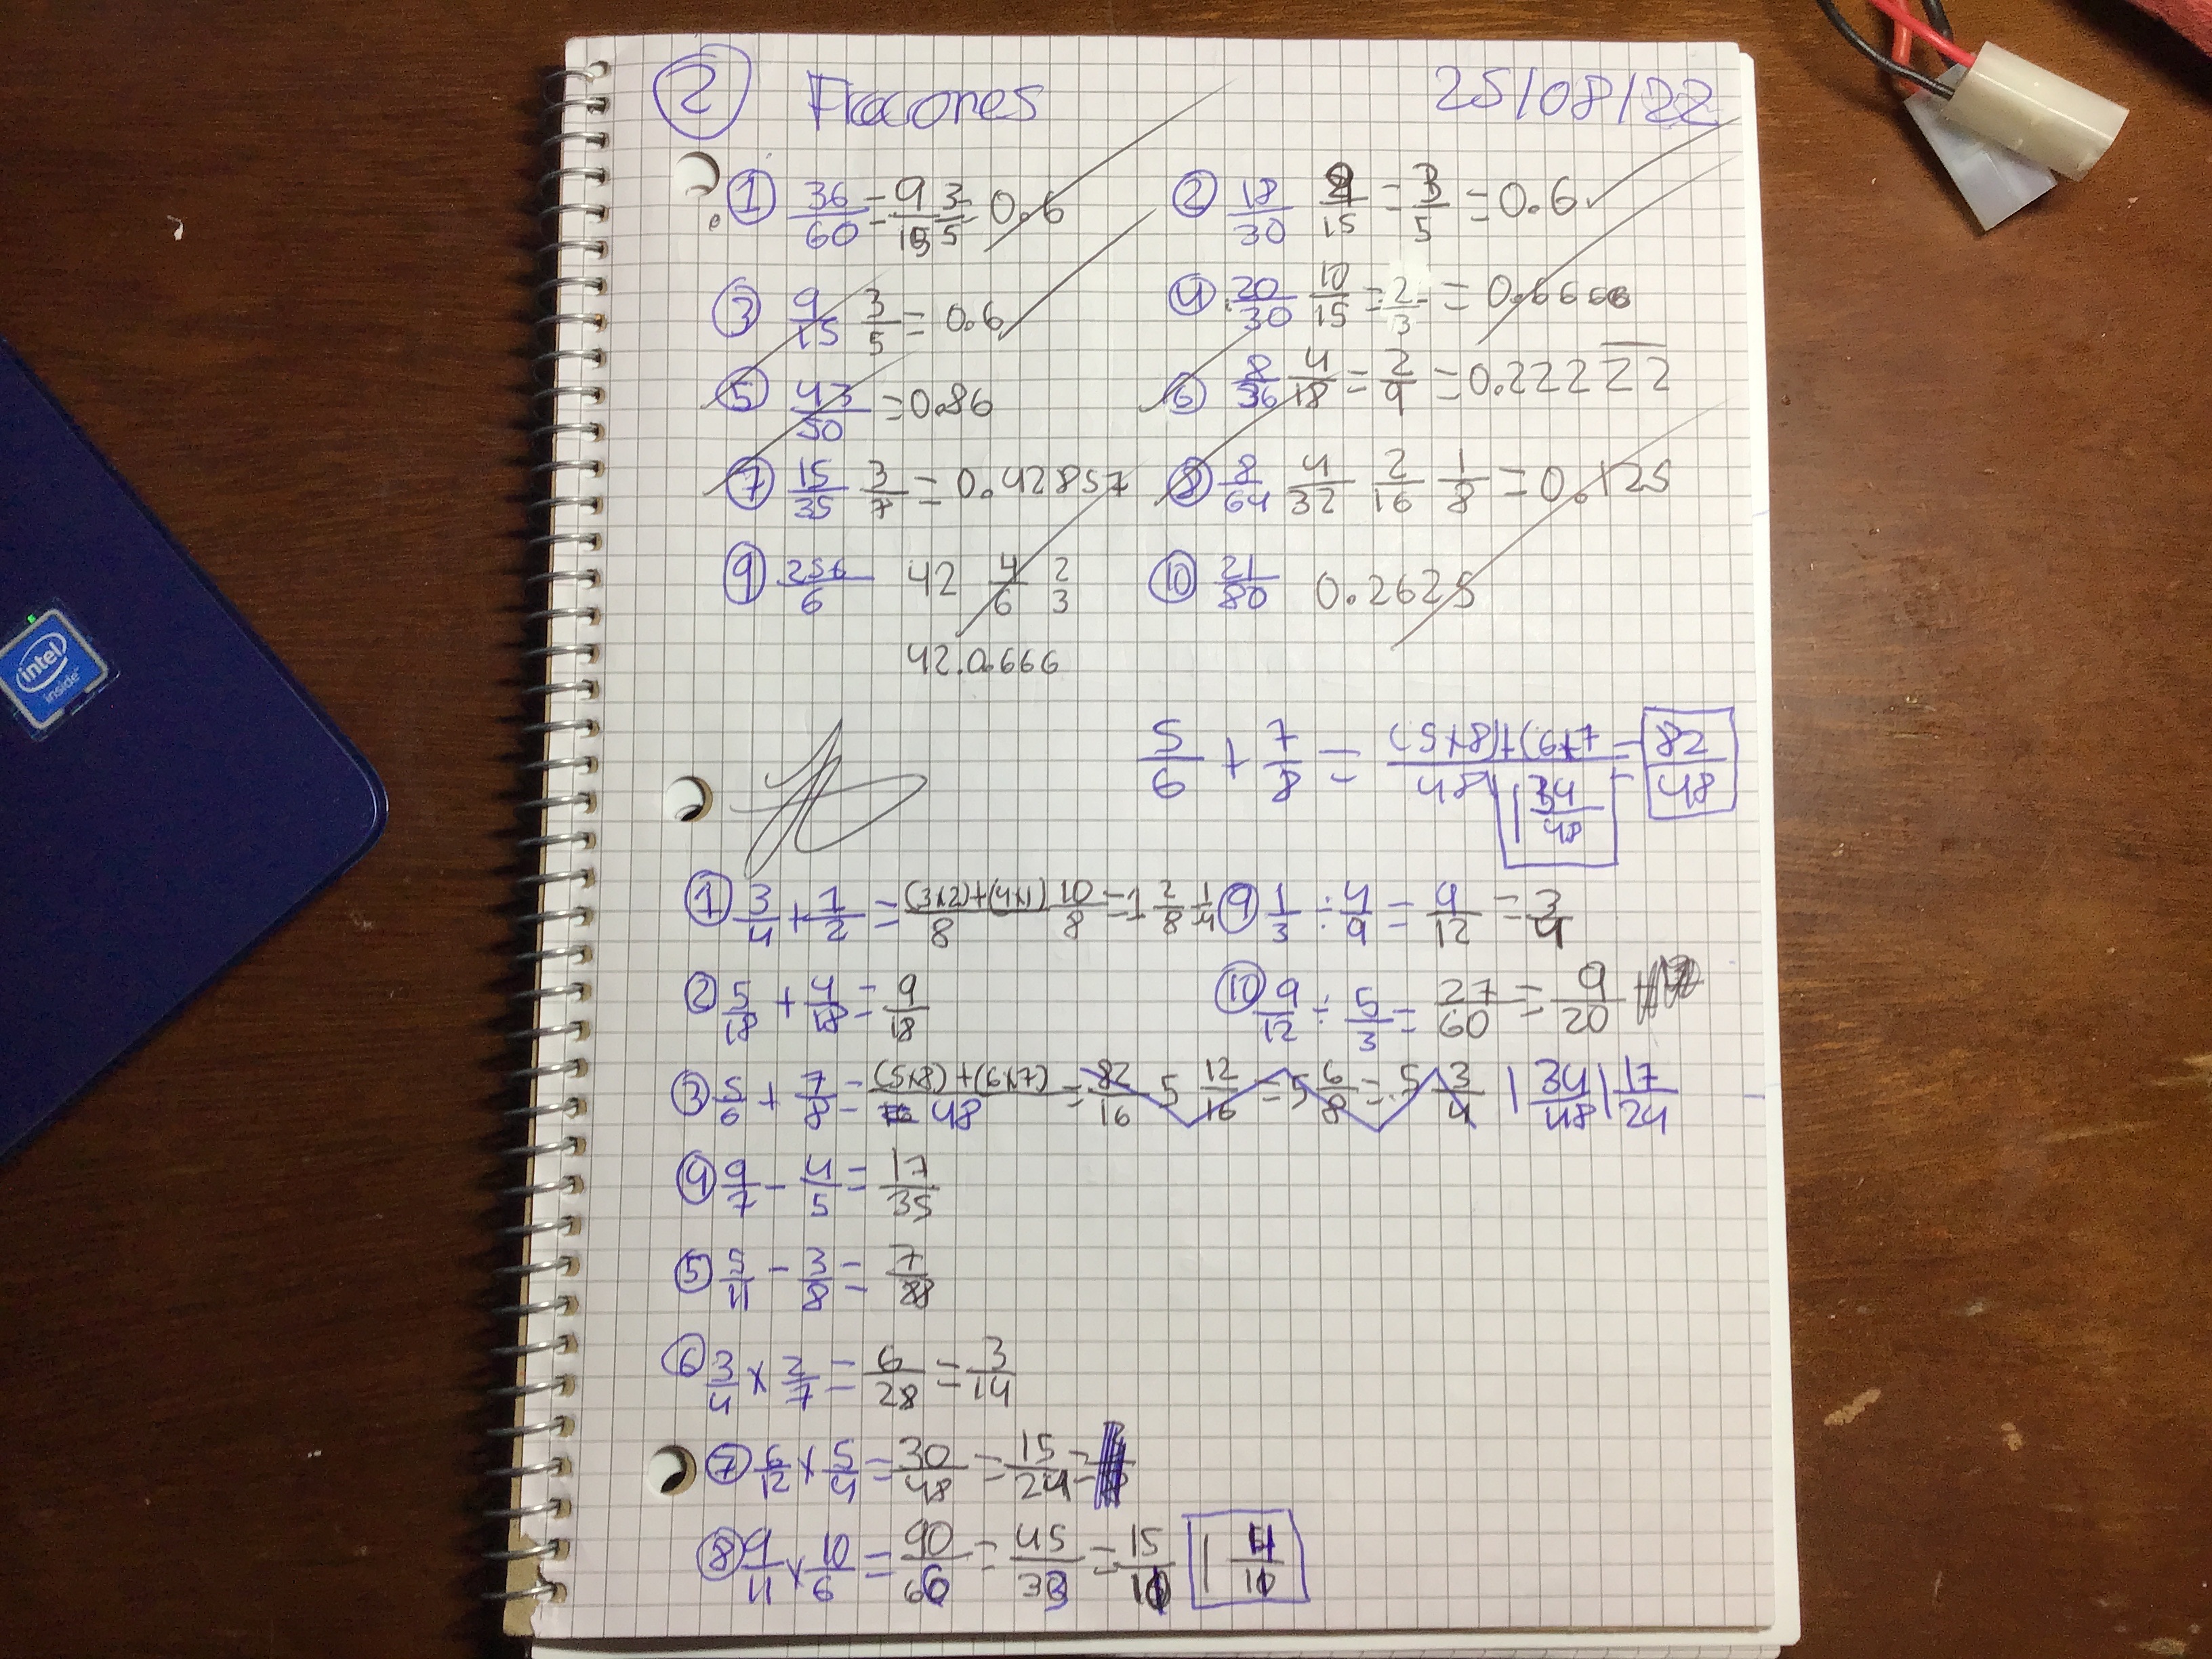 2 Fracciones 25/08/22
① 36/60 = 9/15 3/5 = 0.6 ② 18/30 9/15 = 3/5 = 0.6
③ 9/15 3/5 = 0.6 ④ 20/30 10/15 = 2/3 = 0.6666
⑤ 43/50 = 0.86 ⑥ 8/36 4/18 = 2/9 = 0.22222
⑦ 15/35 3/7 = 0.42857 ⑧ 8/64 4/32 2/16 1/8 = 0.125
⑨ 256/6 42 4/6 2/3 ⑩ 21/80 0.2625
42.0.666
5/6 + 7/8 = (5x8)+(6x7/48 = 82/48
1 34/48
① 3/4 + 1/2 = (3x2)+(4x1)/8 10/8 = 1 2/8 1/4 ⑨ 1/3 ÷ 4/9 = 9/12 = 3/4
② 5/18 + 4/18 = 9/18 ⑩ 9/12 ÷ 5/3 = 27/60 = 9/20
③ 5/6 + 7/8 = (5x8)+(6x7)/48 = 82/16 5 12/16 = 5 6/8 = 5 3/4 1 34/48 1 17/24
④ 9/7 - 4/5 = 17/35
⑤ 5/11 - 3/8 = 7/88
⑥ 3/4 x 2/7 = 6/28 = 3/14
⑦ 6/12 x 5/4 = 30/48 = 15/24 =
⑧ 9/11 x 10/6 = 90/66 = 45/33 = 15/11 1 4/11
intel
inside